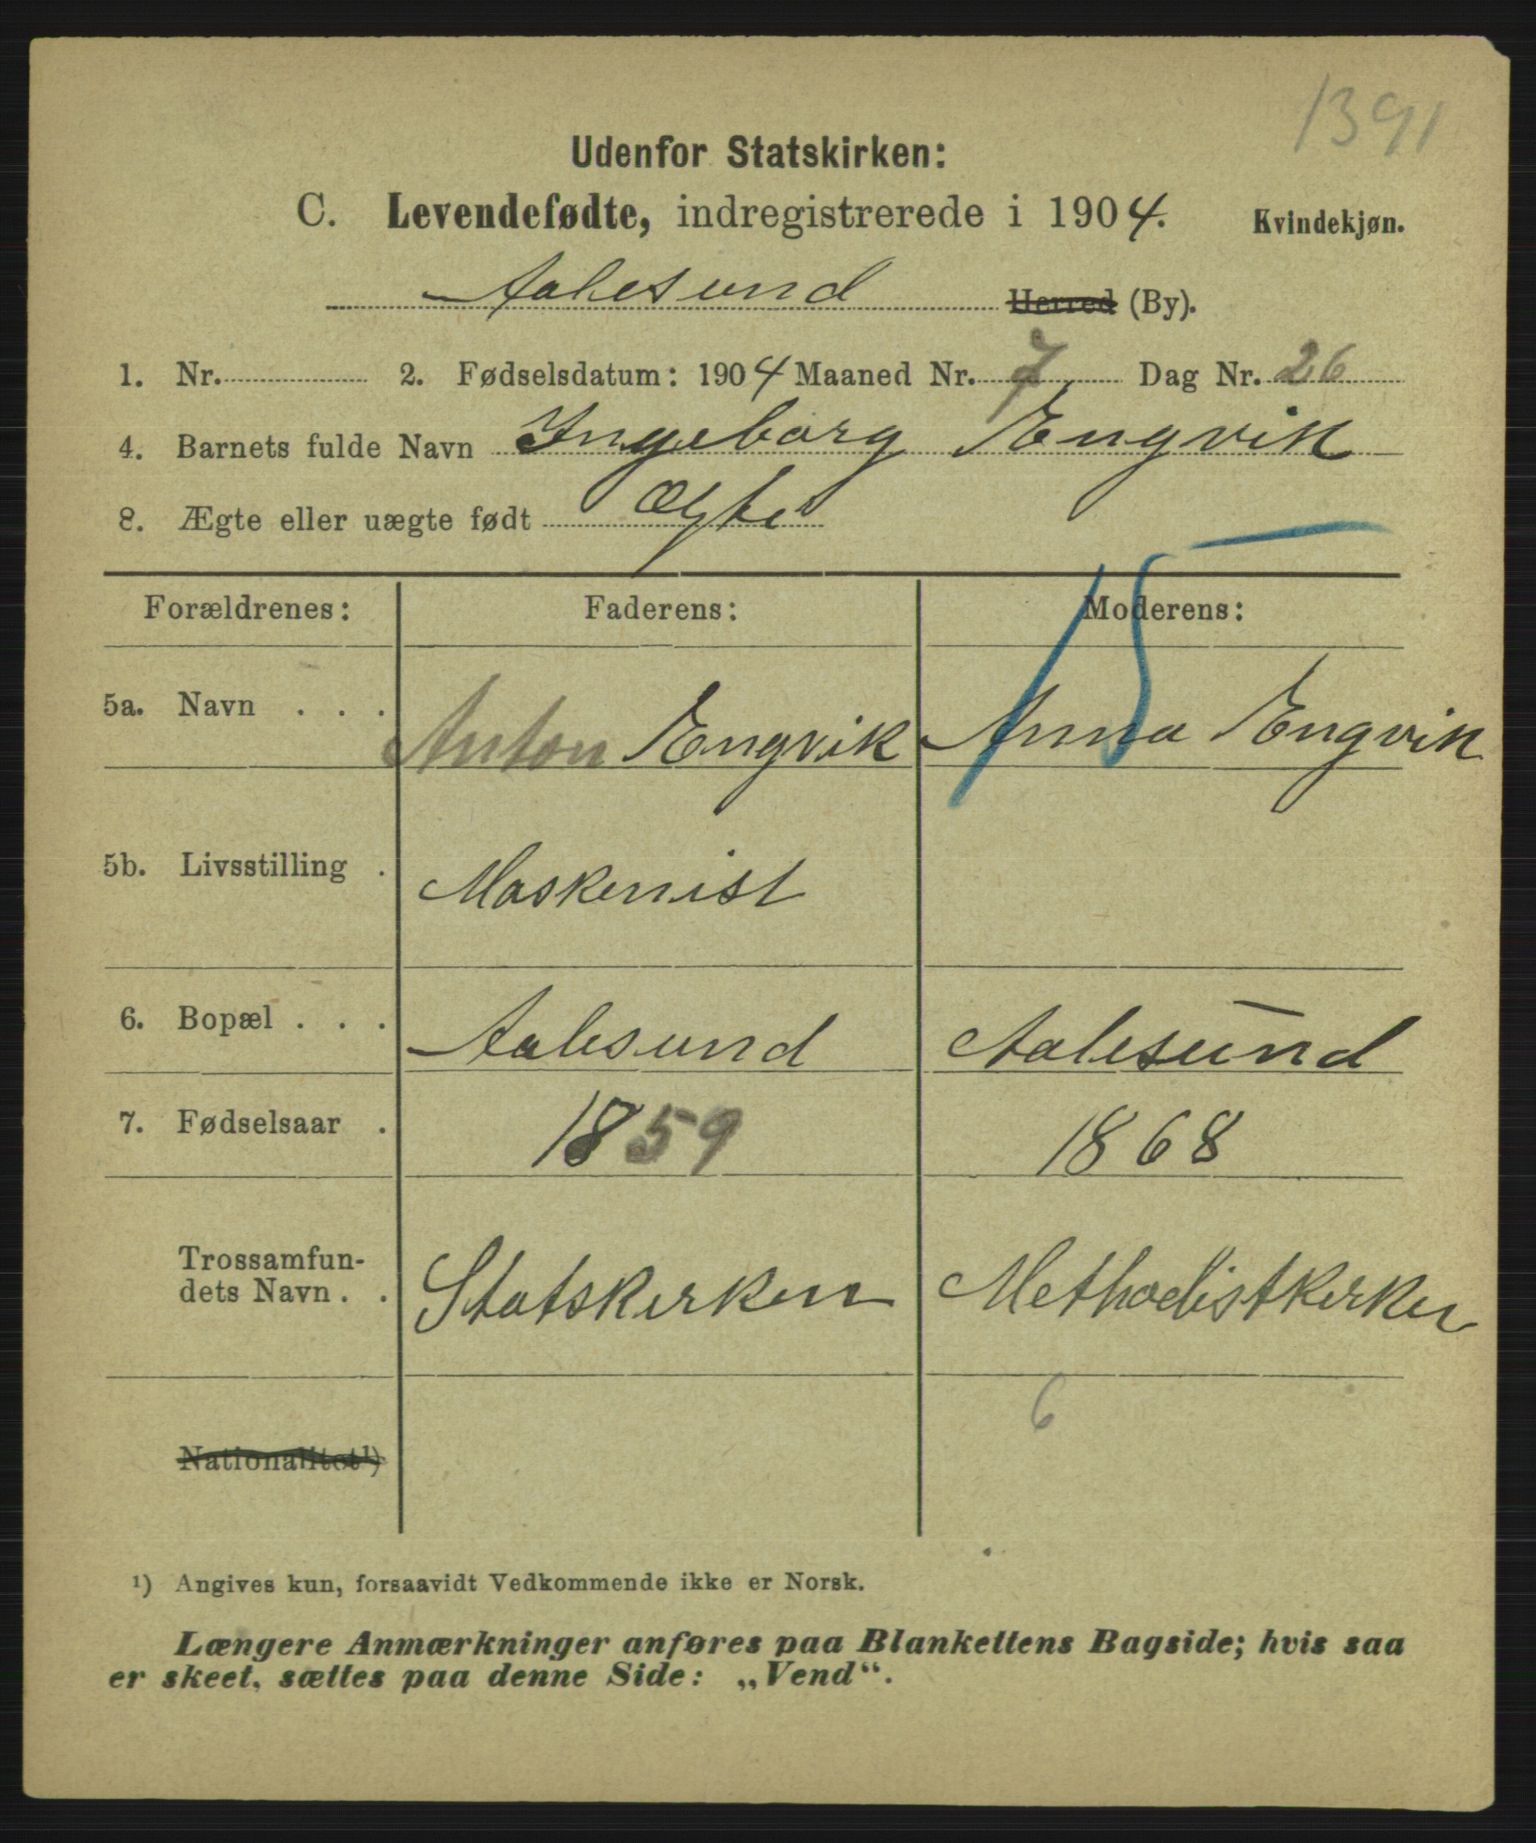 1391
Udenfor Statskirken:
C. Levendefødte, indregistrerede i 1904. Kvindekjøn.
Aalesund Herred (By).
1. Nr. 2. Fødselsdatum: 1904 Maaned Nr. 7 Dag Nr. 26
4. Barnets fulde Navn Ingeborg Engvik
8. Ægte eller uægte født Ægte
15
Forældrenes: Faderens: Moderens:
5a. Navn . . . Anton Engvik Anna Engvik
5b. Livsstilling . Maskenist
6. Bopæl . . . Aalesund Aalesund
7. Fødselsaar . 1859 1868
Trossamfun-
dets Navn . . Statskirken Methodistkirken
6
Nationalitet¹)
¹) Angives kun, forsaavidt Vedkommende ikke er Norsk.
Længere Anmærkninger anføres paa Blankettens Bagside; hvis saa
er skeet, sættes paa denne Side: „Vend“.